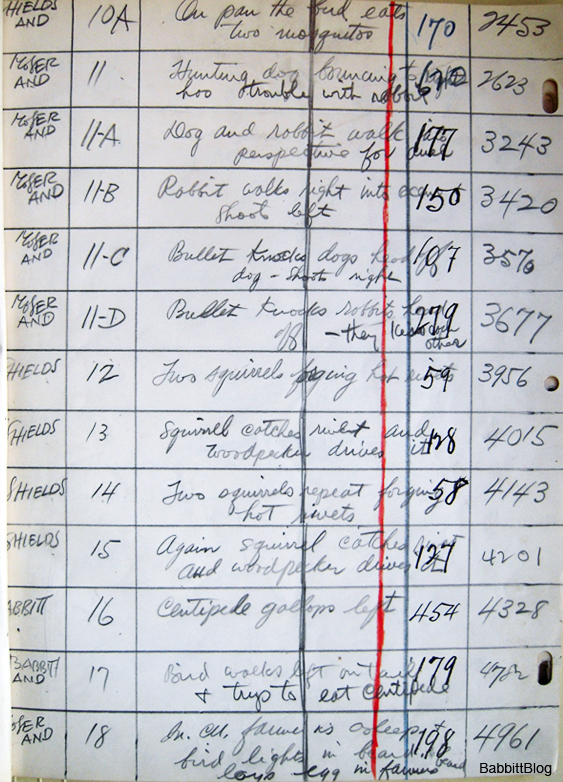 HIELDS AND 10A On pan the bird eats 170 2453
two mosquitos
MOSER AND 11 Hunting dog bouncing to 2623
has trouble with rabbit
MOSER AND 11-A Dog and rabbit walk into 177 3243
perspective for duel
MOSER AND 11-B Rabbit walks right into 150 3420
shoots left
MOSER AND 11-C Bullet knocks dogs head off 107 3570
dog - shoots right
MOSER AND 11-D Bullet knocks rabbits head 279 3677
off - they each other
HIELDS 12 Two squirrels forging hot rivets 59 3956
SHIELDS 13 Squirrel catches rivet and 128 4015
woodpecker drives it
SHIELDS 14 Two squirrels repeat forging 58 4143
hot rivets
SHIELDS 15 Again squirrel catches rivet 127 4201
and woodpecker drives it
ABBITT 16 Centipede gallops left 454 4328
BABBITT AND 17 Bird walks left on tail 179 4782
& trys to eat centipede
OSER AND 18 In CU. farmer is asleep & 198 4961
bird lights in beard &
lays egg in farmers beard
BabbittBlog